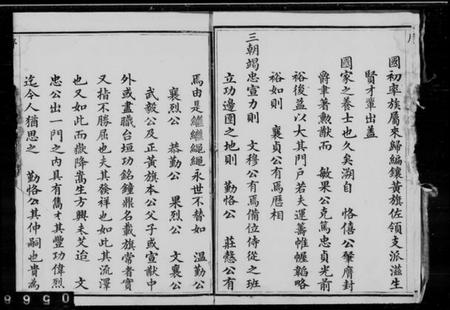 國初率族屬來歸編鑲黃旗佐領支派滋生
賢才輩出蓋
國家之養士也久矣溯自 恪僖公肇膺封
爵聿著勲猷而 敏果公克篤忠貞光前
裕後蓋以大其門戸若夫運籌帷幄韜略
裕如則 襄貞公有焉歴相
三朝竭忠宣力則 文穆公有焉備位侍從之班
立功邊圉之地則 勤恪公 莊慤公有
焉由是繼繼繩繩永世不替如 溫勤公
襄烈公 恭勤公 果烈公 文襄公
武毅公及正黃旗本公父子或宣猷中
外或盡職台垣功銘鐘鼎名載旂常者實
又指不勝屈也夫其發祥也如此其流澤
也又如此而嶽降嵩生方興未艾迨 文
忠公出一門之內具有雋才其豐功偉烈
迄今人猶思之 勤恪公其仲嗣也貴爲
05668